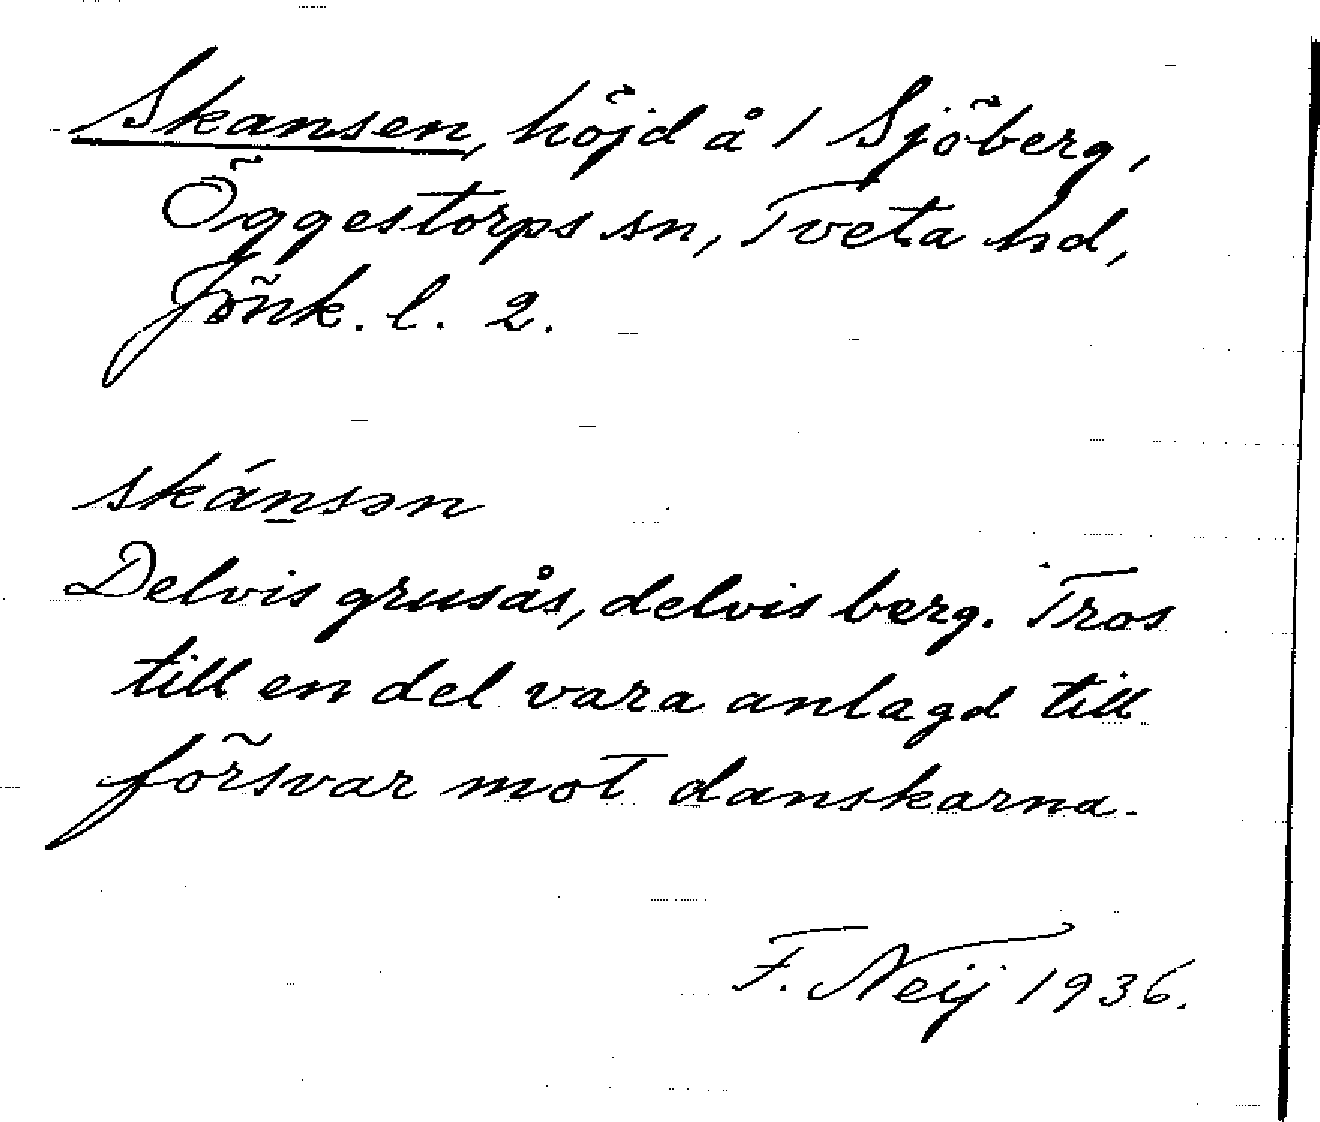 Skansen, höjd å 1 Sjöberg,
Öggestorps sn, Tveta hd,
Jönk. l. 2.
skánsən
Delvis grusås, delvis berg. Tros
till en del vara anlagd till
försvar mot danskarna.
F. Neij 1936.